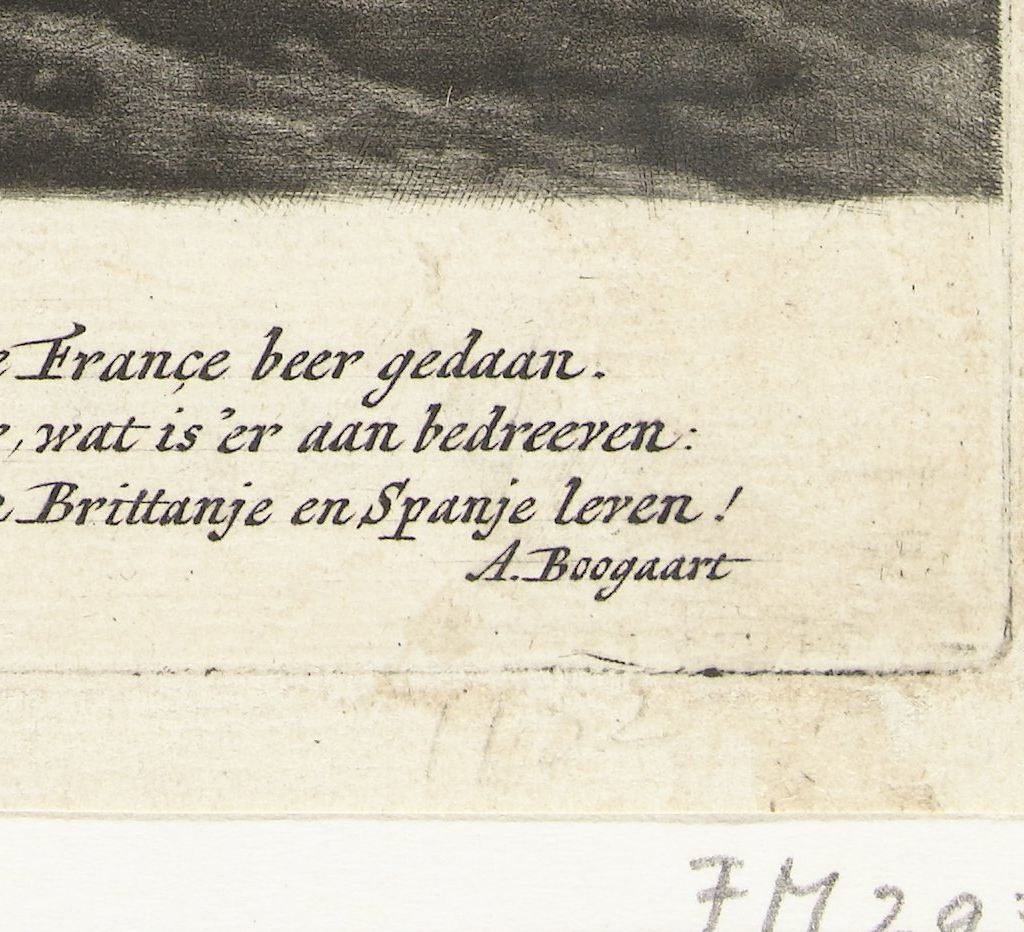 e Françe beer gedaan.
, wat is 'er aan bedreeven:
e Brittanje en Spanje leven!
A. Boogaart
FM 29